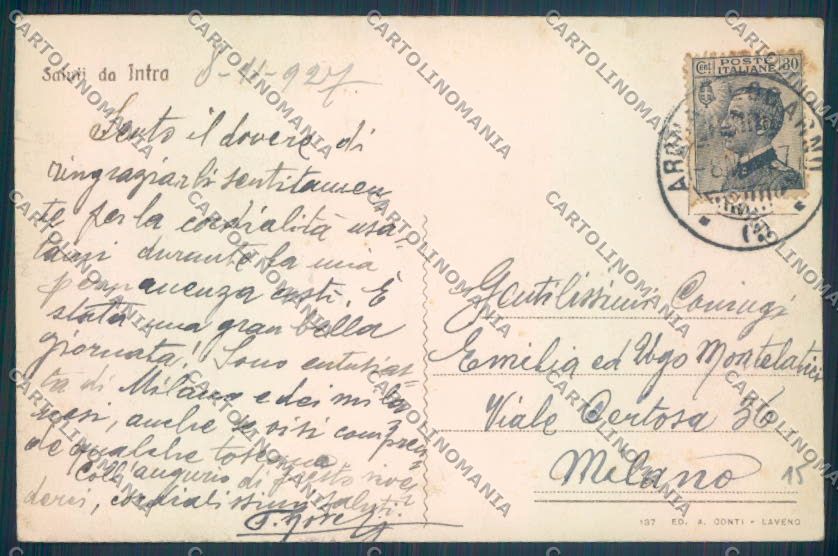 Saluti da Intra
8-11-927
Sento il dovere di
ringraziarli sentitamen-
te per la cordialità usa-
tami durante la mia
permanenza costì. È
stata una gran bella
giornata! Sono entusia-
sta di Milano e dei mila-
nesi, anche se vi si compren-
de qualche toscano
Coll'augurio di presto rive-
derci, cordialissimi saluti.
CENT 30
POSTE
ITALIANE
Gentilissimi Coniugi
Emilia ed Ugo Montelatici
Viale Certosa 36
Milano
15
137 ED. A. CONTI - LAVENO
CARTOLINOMANIA